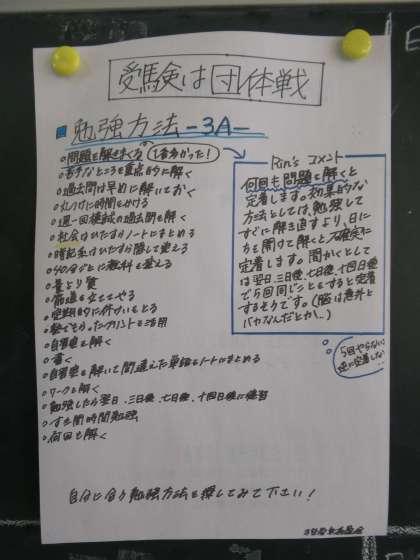 受験は団体戦
勉強方法-3A-
問題を解きまくる(1番多かった!)
苦手なところを重点的に解く
過去問は早めに解いておく
週一回模試の過去問を解く
社会はひたすらノートにまとめる
暗記系はひたすら勝して覚える
量より質
計画を立ててやる
自習室で解く
書く
自習室を解いて間違えた単語をノートにまとめる
ワークを解く
勉強したら翌日、三日後、七日後、十四日後に復習
すき間時間勉強
何回も解く
Rin's コメント
何回も問題を解くと
定着します。効果的な
方法としては、勉強して
すぐに解き直すより、日に
ちを開けて解くと、確実に
定着します。間かくとして
は翌日、三日後、七日後、十四日後
で5回同じことをすると定着
するそうです。(脳は意外と
バカなんだとか…)
5回やらないと
逆に定着しない
自分に合う勉強方法を探してみて下さい!